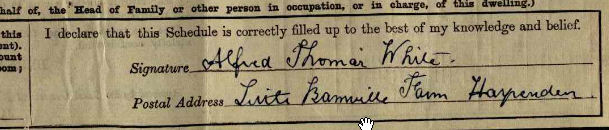 half of, the Head of Family or other person in occupation, or in charge, of this dwelling.)
this
nt).
ount
oom;
I declare that this Schedule is correctly filled up to the best of my knowledge and belief.
Signature Alfred Thomas White.
Postal Address Bamville Farm Harpenden